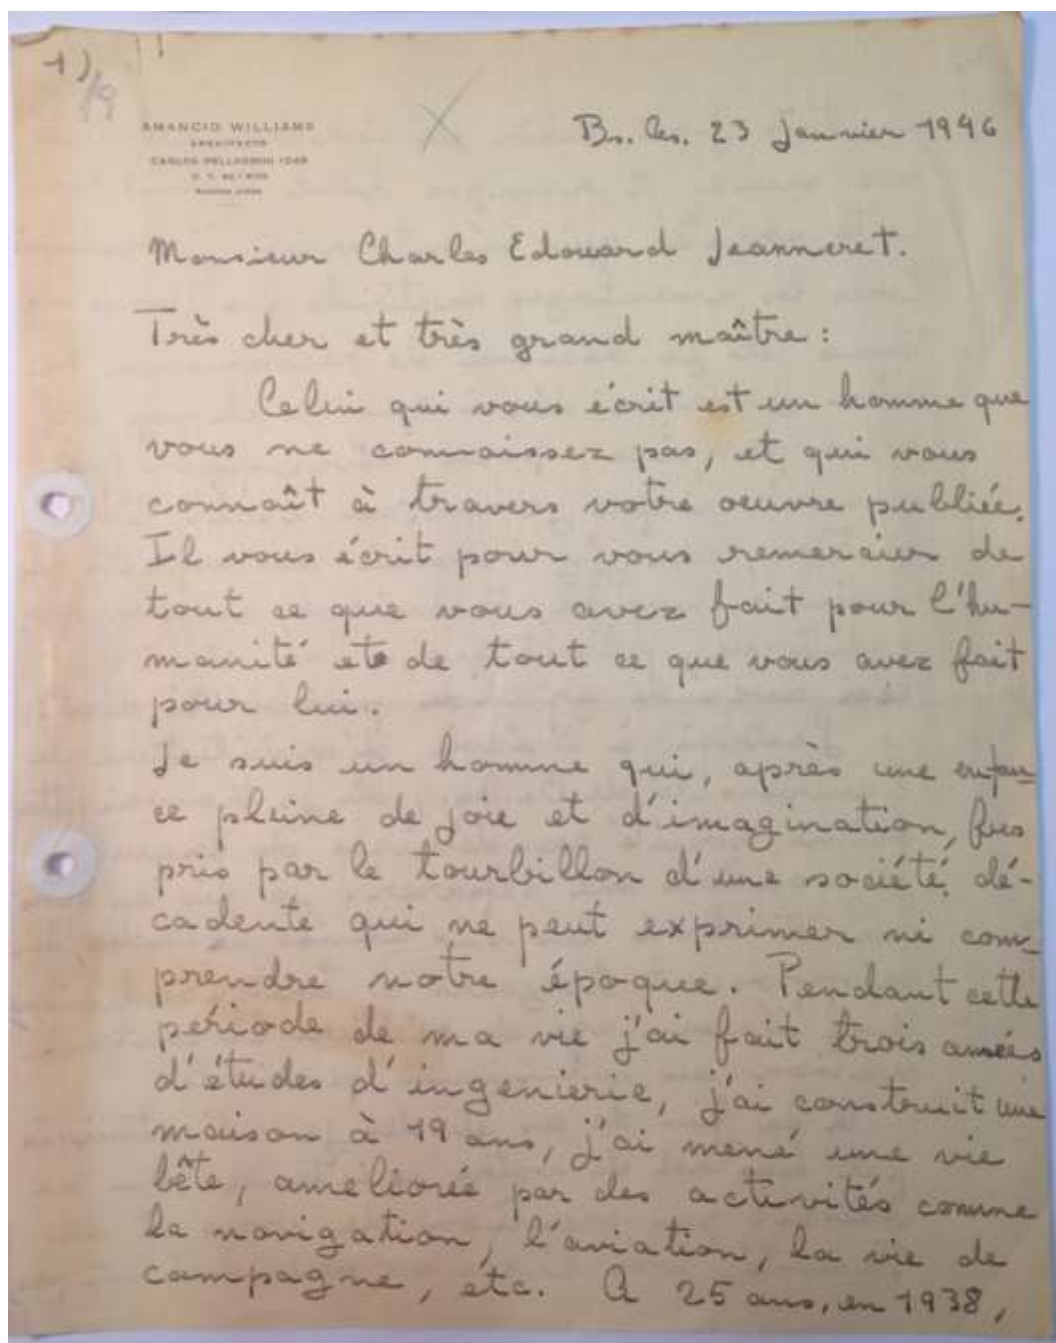 1)/9
AMANCIO WILLIAMS
ARCHITECTO
CARLOS PELLEGRINI
BUENOS AIRES
Bs. As. 23 janvier 1946
Monsieur Charles Edouard Jeanneret.
Très cher et très grand maître:
Celui qui vous écrit est un homme que
vous ne connaissez pas, et qui vous
connaît à travers votre oeuvre publiée.
Il vous écrit pour vous remercier de
tout ce que vous avez fait pour l'hu-
manité et de tout ce que vous avez fait
pour lui.
Je suis un homme qui, après une enfan-
ce pleine de joie et d'imagination, fus
pris par le tourbillon d'une société dé-
cadente qui ne peut exprimer ni com-
prendre notre époque. Pendant cette
période de ma vie j'ai fait trois années
d'études d'ingenierie, j'ai construit une
maison à 19 ans, j'ai mené une vie
bête, ameliorée par des activités comme
la navigation, l'aviation, la vie de
campagne, étc. A 25 ans, en 1938,